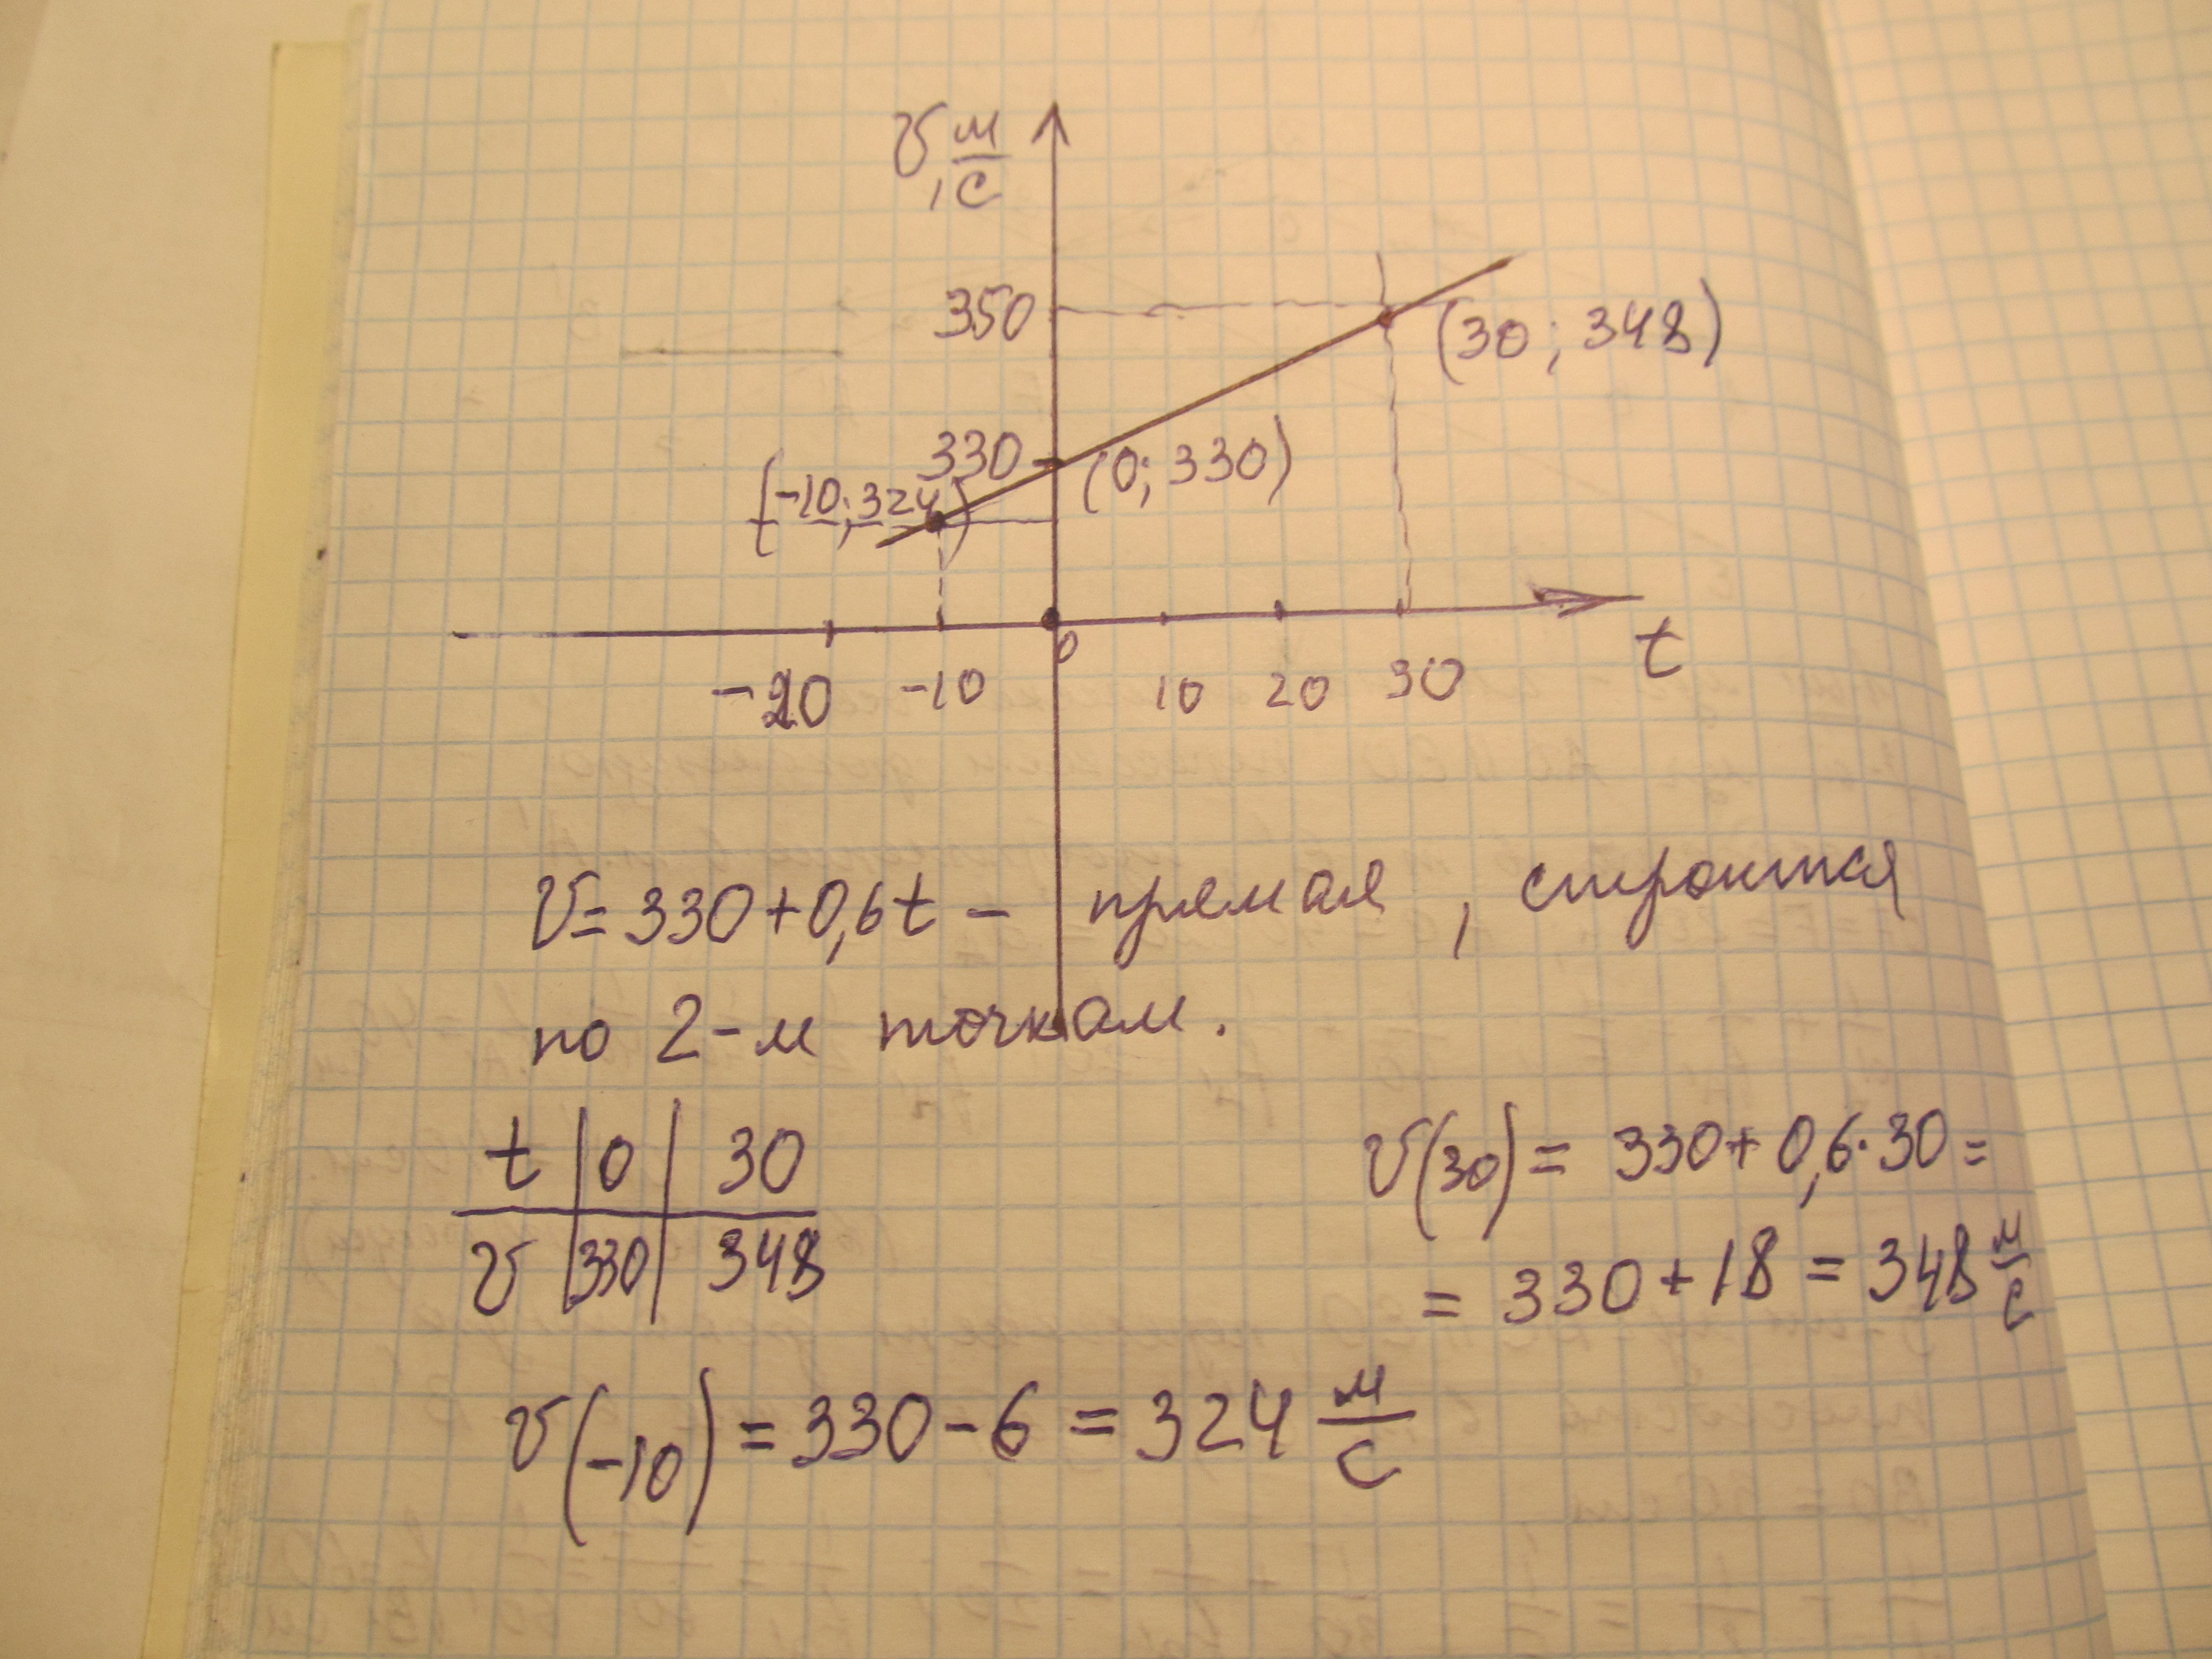 v, м/с
350
(30; 348)
330
(0; 330)
(-10; 324)
0
t
-20 -10 10 20 30
v = 330 + 0,6t - прямая, строится
по 2-м точкам.
t | 0 | 30
v | 330 | 348
v(30) = 330 + 0,6·30 =
= 330 + 18 = 348 м/с
v(-10) = 330 - 6 = 324 м/с